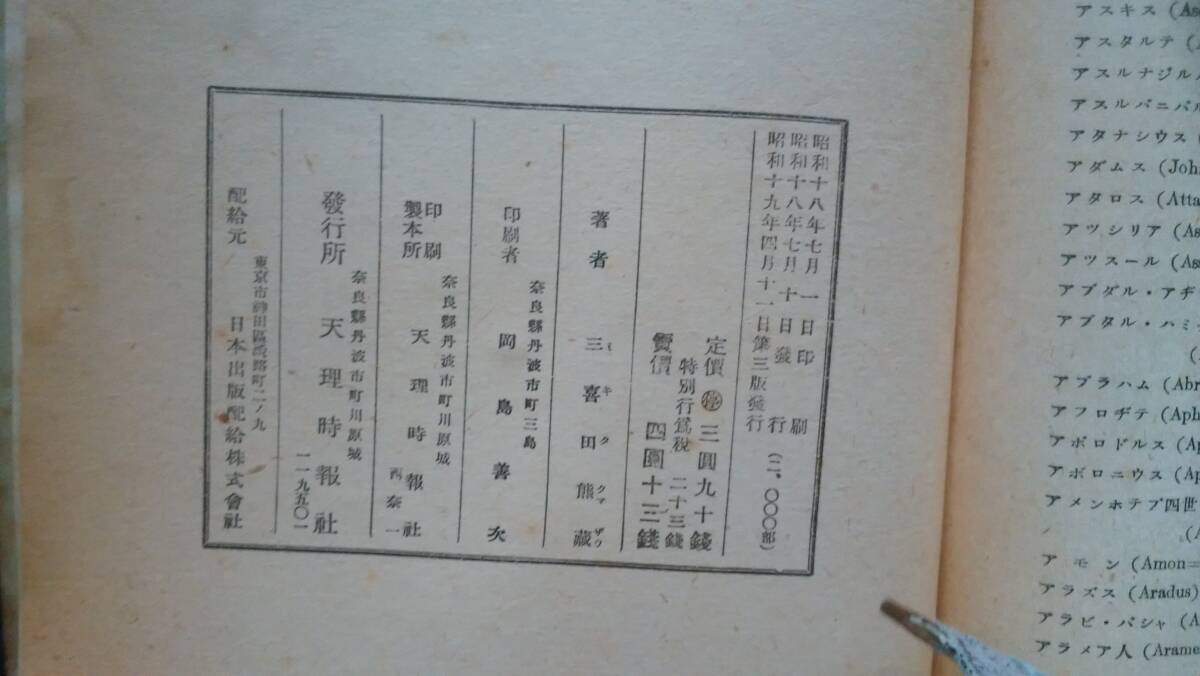 昭和十八年七月一日印刷
昭和十八年七月十日發行
昭和十九年四月十一日第三版發行
(二、〇〇〇部)
定價 停 三圓九十錢
特別行爲税 二十三錢
賣價 四圓十三錢
著者 三喜田熊藏
ミ キ タ クマ ザウ
印刷者
奈良縣丹波市町三島
岡島善次
印刷
製本所
奈良縣丹波市町川原城
天理時報社
西奈一
發行所
奈良縣丹波市町川原城
天理時報社
二一九五〇一
配給元
東京市神田區淡路町二ノ九
日本出版配給株式會社
アスキス (As
アスタルテ (
アスルナジル
アスルバニパル
アタナシウス (
アダムス (Joh
アタロス (Atta
アツシリア (As
アツスール (Ass
アブダル・アヂ
アブタル・ハミ
アブラハム (Abr
アフロヂテ (Aph
アポロドルス (Ap
アポロニウス (Ap
アメンホテプ四世
アモン (Amon=
アラズス (Aradus)
アラビ・パシャ (A
アラメア人 (Arame